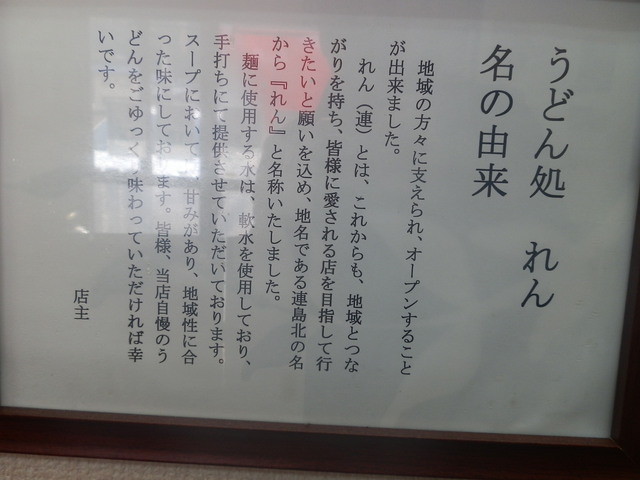 うどん処 れん
名の由来
地域の方々に支えられ、オープンすること
が出来ました。
れん（連）とは、これからも、地域とつな
がりを持ち、皆様に愛される店を目指して行
きたいと願いを込め、地名である連島北の名
から『れん』と名称いたしました。
麺に使用する水は、軟水を使用しており、
手打ちにて提供させていただいております。
スープにおいて、甘みがあり、地域性に合
った味にしております。皆様、当店自慢のう
どんをごゆっくり味わっていただければ幸
いです。
店主